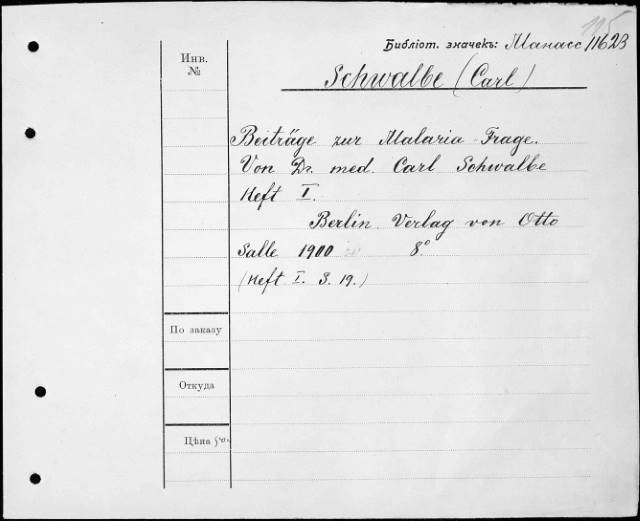 115
Библіот. значекъ: Манасс 11623
Инв.
№
Schwalbe (Carl)
Beiträge zur Malaria-Frage.
Von Dr. med. Carl Schwalbe
Heft I.
Berlin. Verlag von Otto
Salle 1900 8°
(Heft I. S. 19.)
По заказу
Откуда
Цѣна